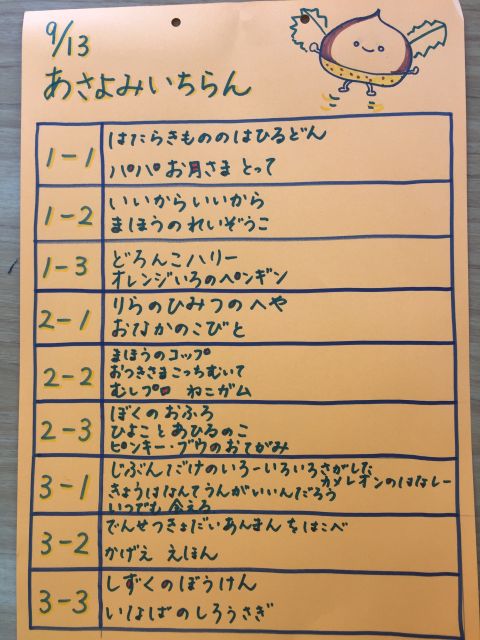 9/13
あさよみいちらん
1-1
はたらきもののはひるどん
パパ お月さま とって
1-2
いいからいいから
まほうのれいぞうこ
1-3
どろんこハリー
オレンジいろのペンギン
2-1
りらのひみつのへや
おなかのこびと
2-2
まほうのコップ
おつきさまこっちむいて
むしプロ ねこガム
2-3
ぼくのおふろ
ひよことあひるのこ
ピンキー・ブウのおてがみ
3-1
じぶんだけのいろーいろいろさがした
カメレオンのはなしー
きょうはなんてうんがいいんだろう
いつでも会える
3-2
でんせつきょだいあんまんをはこべ
かげえ えほん
3-3
しずくのぼうけん
いなばのしろうさぎ